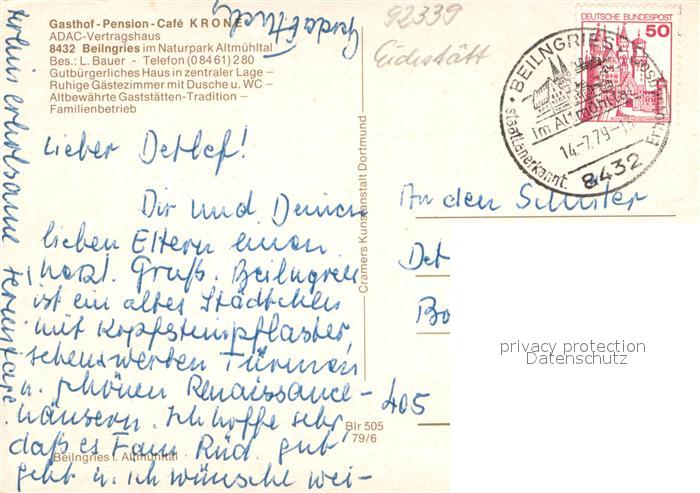 Gasthof-Pension-Café KRONE
ADAC-Vertragshaus
8432 Beilngries im Naturpark Altmühltal
Bes.: L. Bauer - Telefon (08461) 280
Gutbürgerliches Haus in zentraler Lage –
Ruhige Gästezimmer mit Dusche u. WC –
Altbewährte Gaststätten-Tradition –
Familienbetrieb
92339
Eichstätt
DEUTSCHE BUNDESPOST
50
BEILNGRIES
im Altmühltal
14.-7.79-
staatl. anerkannt.
8432
Lieber Detlef!
Dir und Deinen
lieben Eltern einen
herzl. Gruß. Beilngries
ist ein altes Städtchen
mit Kopfsteinpflaster,
sehenswerten Türmen
u. schönen Renaissance-
häusern. Ich hoffe sehr,
daß es Fam. Rüd. gut
geht u. ich wünsche wei-
terhin erholsame Ferientage
An den Schüler
Det
Bo
405
Cramers Kunstanstalt Dortmund
Blr 505
79/6
Beilngries i. Altmühltal
privacy protection
Datenschutz